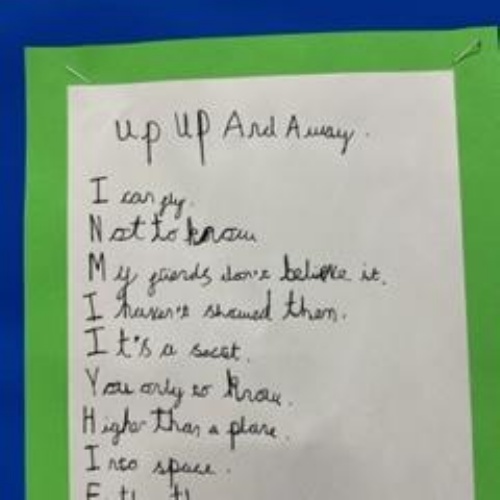 Up UP And Away.
I can fly.
Not to know
My friends don't believe it.
I haven't showed them.
It's a secret.
You only to know.
Higher than a plane.
Into space.